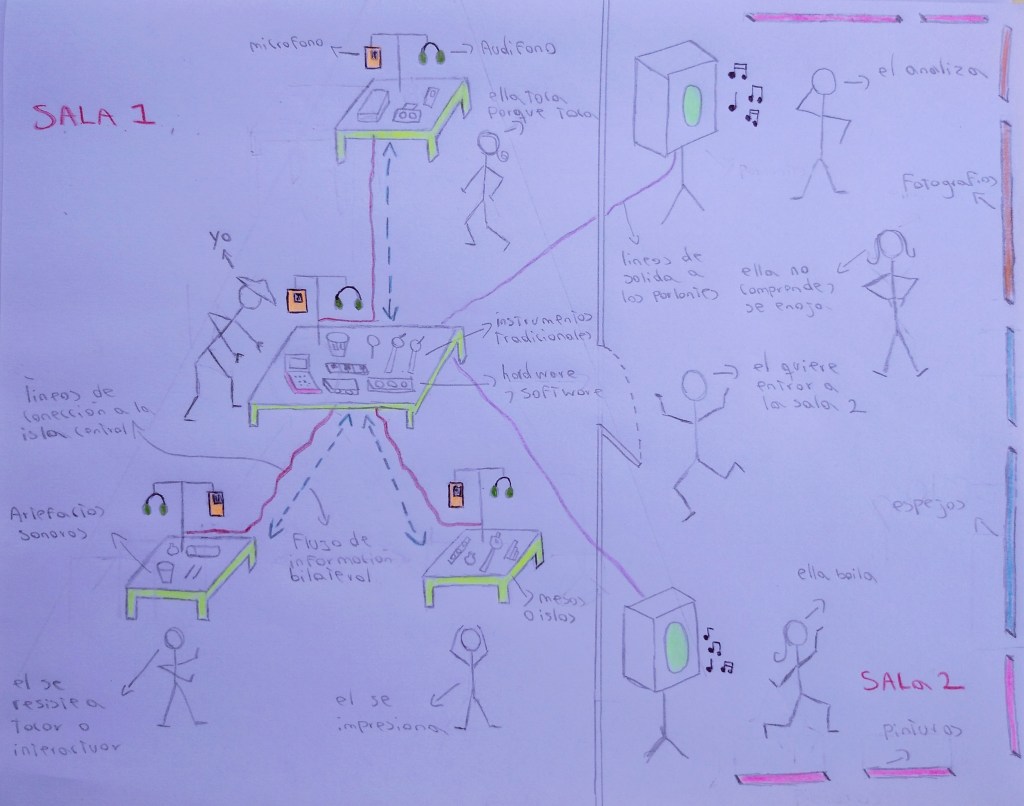 microfono
Audifono
SALA 1
ella toca
porque toca
el analiza
Fotografias
yo
lineas de
salida a
los parlantes
ella no
comprende y
se enoja
instrumentos
tradicionales
hardware
y software
el quiere
entrar a
la sala 2
lineas de
conección a la
isla central
Artefactos
sonoros
Flujo de
información
bilateral
espejos
mesas
o islas
ella baila
el se
resiste a
tocar o
interactuar
el se
impresiona
SALA 2
pinturas